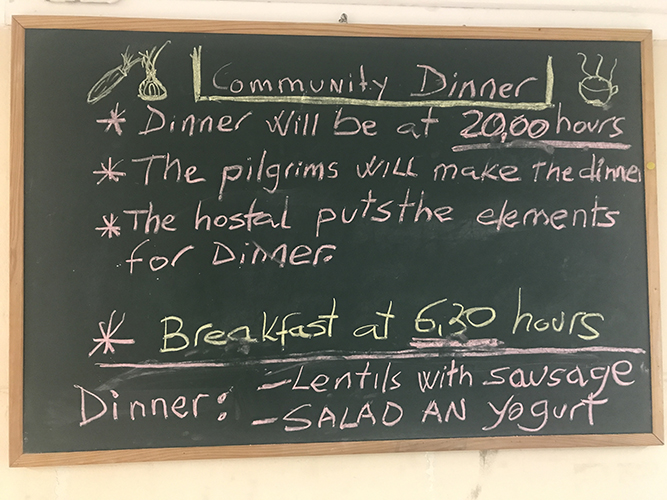 Community Dinner
* Dinner will be at 20,00 hours
* The pilgrims will make the dinner
* The hostal puts the elements
for Dinner.
* Breakfast at 6,30 hours
Dinner: - Lentils with sausage
- SALAD AN Yogurt